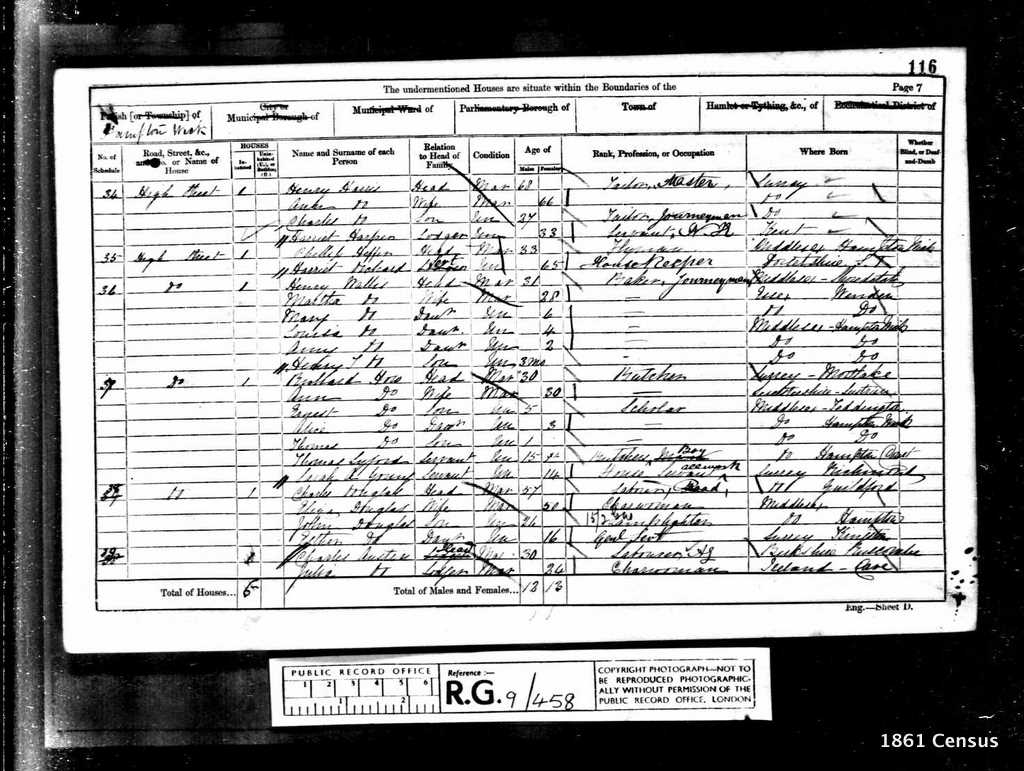 116
The undermentioned Houses are situate within the Boundaries of the
Page 7
Parish [or Township] of
City or Municipal Borough of
Municipal Ward of
Parliamentary Borough of
Town of
Hamlet or Tything, &c., of
Ecclesiastical District of
Hampton Wick
No. of Schedule
Road, Street, &c., and No. or Name of House
HOUSES
Inhabited
Uninhabited (U.), or Building (B.)
Name and Surname of each Person
Relation to Head of Family
Condition
Age of
Males
Females
Rank, Profession, or Occupation
Where Born
Whether Blind, or Deaf-and-Dumb
34 High Street 1 Henry Harris Head Mar 68 Tailor, Master, Surrey
Do Wife Mar 66 Do
Charles Do Son Un 27 Tailor, Journeyman Do
Harriet Harper Lodger Un 33 Servant, Kent
35 High Street 1 Philip Head Mar 33 Middlesex Hampton Wick
Harriet Un 65 House Keeper
36 Do 1 Henry Wallis Head Mar 31 Baker, Journeyman Middlesex
Martha Do Wife Mar 28 — Essex
Mary Do Daur Un 6 — Do Do
Louisa Do Daur Un 4 — Middlesex - Hampton Wick
Do Daur Un 2 — Do Do
Henry Do Son Un 3 mo - Do Do
37 Do 1 Head Mar 30 Butcher Surrey - Mortlake
Ann Do Wife Mar 30
Ernest Do Son Un 5 Scholar Middlesex - Teddington
Alice Do Daur Un 3 — Do Hampton Wick
Thomas Do Son Un 1 — Do Do
Thomas Servant Un 15 Butchers, Boy Do Hampton
Sarah Young Servant Un 14 House Surrey Richmond
38 Do 1 Charles Douglas Head Mar 57 Labourer, Road, Do Guildford
Eliza Douglas Wife Mar 50 Charwoman Middlesex
John Douglas Son Un 26 Lamplighter Do Hampton
Do Daur Un 16 Genl Servt Surrey
39 Charles Austin Head Mar 30 Labourer, Ag Berkshire
Julia Do Mar 26 Charwoman Ireland -
Total of Houses... 5
Total of Males and Females... 12 13
Eng.—Sheet D.
PUBLIC RECORD OFFICE
1 2 3 4 5 6
1 2
Reference :—
R.G. 9/458
COPYRIGHT PHOTOGRAPH—NOT TO
BE REPRODUCED PHOTOGRAPHIC-
ALLY WITHOUT PERMISSION OF THE
PUBLIC RECORD OFFICE, LONDON
1861 Census